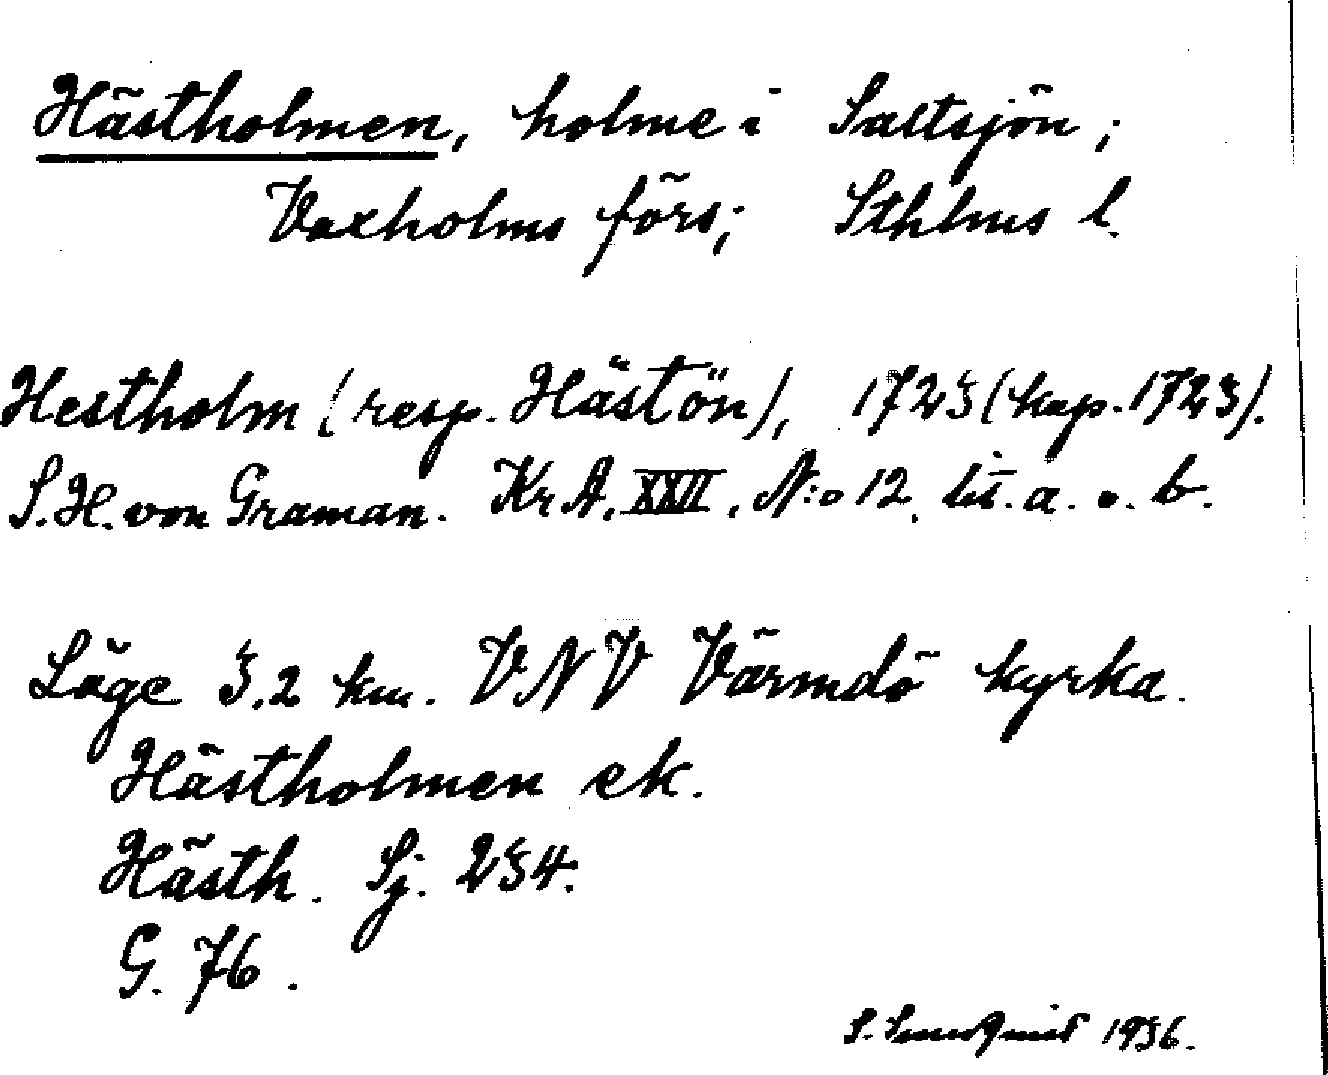 Hästholmen, holme i Saltsjön;
Vaxholms förs; Sthlms l.
Hestholm (resp. Hästön), 1723 (kop. 1723).
S.H. von Graman. Kr A. XXII, N:o 12, lit. a. o. b.
Läge 3.2 km. VNV Värmdö kyrka.
Hästholmen ek.
Hästh. Sj. 234.
G. 76.
S. 1936.